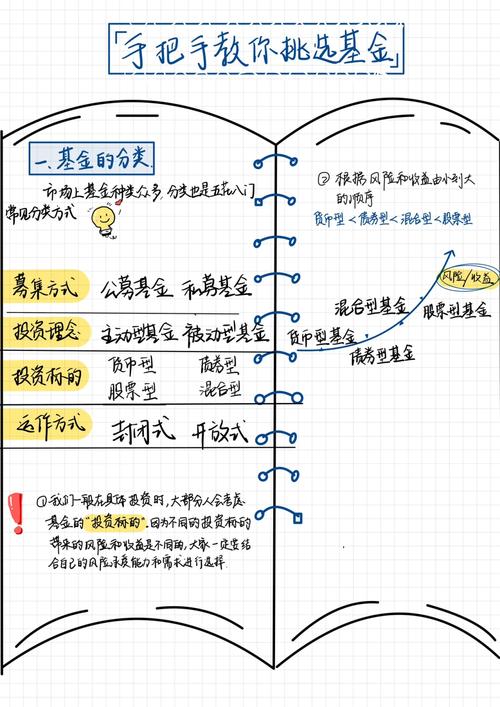 「手把手教你挑选基金」
一、基金的分类
市场上基金种类众多,分类也是五花八门
常见分类方式
募集方式 公募基金 私募基金
投资理念 主动型基金 被动型基金
投资标的 货币型 债券型
股票型 混合型
运作方式 封闭式 开放式
①我们一般在具体投资时,大部分人会考虑
基金的"投资标的".因为不同的投资标的
带来的风险和收益是不同的,大家一定要结
合自己的风险承受能力和需求进行选择.
②根据风险和收益由小到大
的顺序
货币型<债券型<混合型<股票型
风险/收益
混合型基金 股票型基金
货币型基金
债券型基金